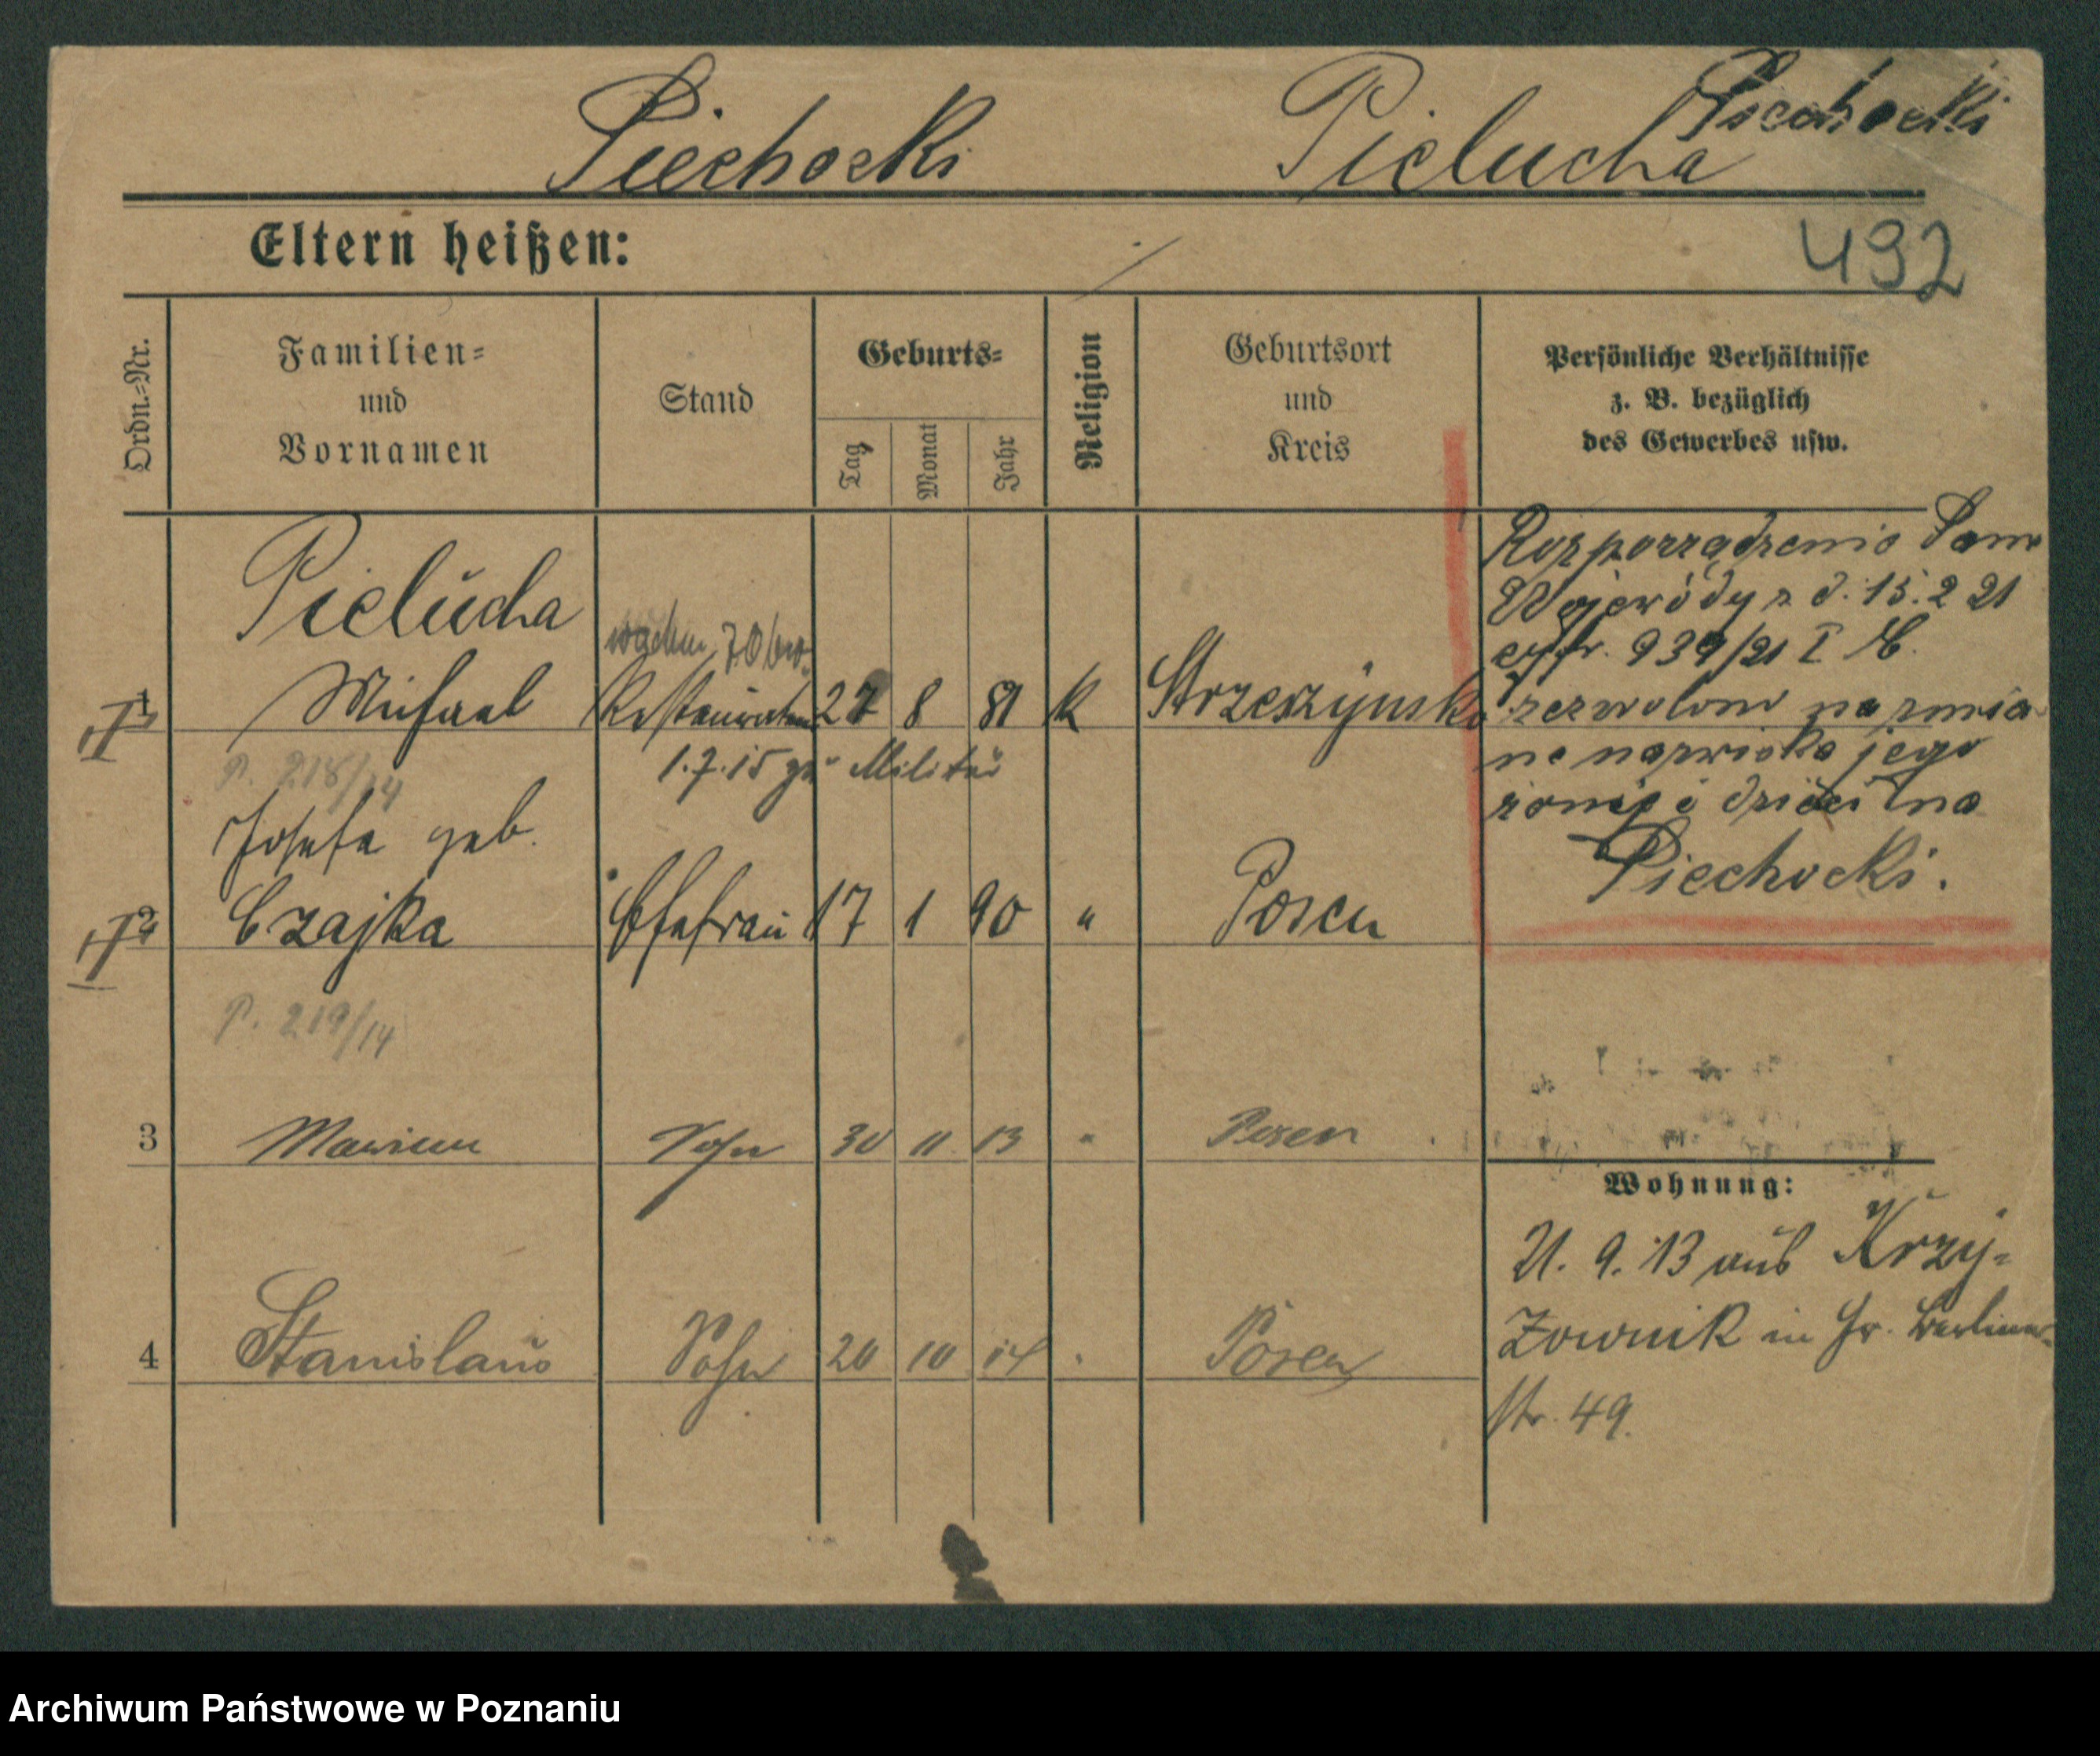 Piechocki Pielucha Piechocki
Eltern heißen:
492
Ordn.=Nr.
Familien=
und
Vornamen
Stand
Geburts=
Tag
Monat
Jahr
Religion
Geburtsort
und
Kreis
Persönliche Verhältnisse
z. B. bezüglich
des Gewerbes usw.
Pielucha
1 Michael Restaurateur 27 8 81 K Strzeszynko
P. 218/14
1.7.15 zu Militär
Josefa geb.
2 Czajka Ehefrau 17 1 90 " Posen
P. 219/14
3 Marian Sohn 30 11 13 " Posen
4 Stanislaus Sohn 20 10 14 " Posen
Rozporządzenie Pana
Wojewody z d. 15.2 21
939/21 I
zezwolono na zmia-
nę nazwiska jego
żony i dzieci na
Piechocki.
Wohnung:
21. 9. 13 aus Krzy=
zownik in Gr. Berliner-
str. 49.
Archiwum Państwowe w Poznaniu